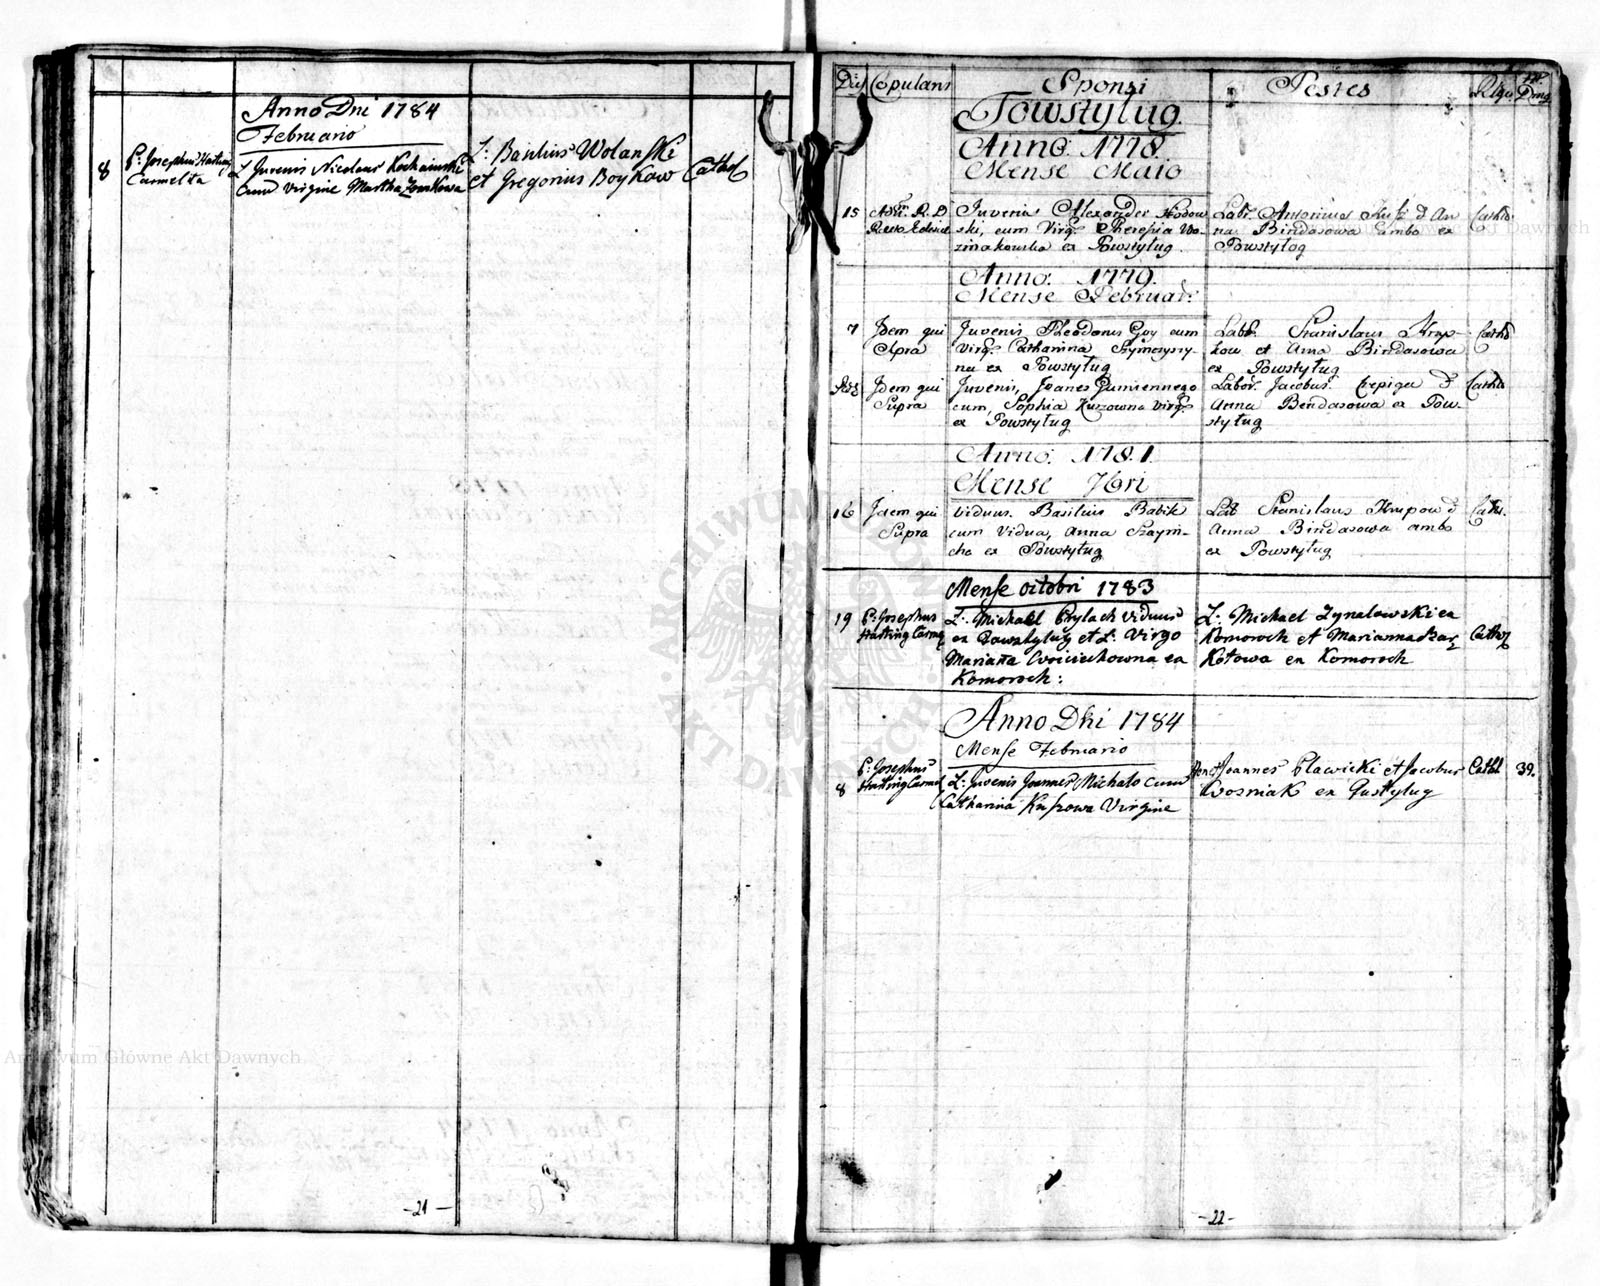 Anno Dni 1784
Februario
8 P: Josephus Harting
Carmelita
L Juvenis Nicolaus
cum Virgine Martha
L: Basilius Wolanski
et Gregorius Boykow
Cathol
-21-
Dies Copulans Sponsi Testes Relgo
Dmg
Towstylug.
Anno: 1778.
Mense Maio
15
Juvenis Alexander
ski, cum Virg: Theresia Wo-
zniakowska ex Powstylug.
Labr. Antonius & An
na Bindasowa ambo ex
Powstylog
Catho
Anno: 1779.
Mense Februar:
7 Idem qui
Supra
Juvenis Theodorus Goy cum
virg: Catharina
na ex Powstylug
Labr. Stanislaus Krup-
kow et Anna Bindasowa
ex Powstylug
Catho
Idem qui
Supra
Juvenis, Joanes Gumiennego
cum, Sophia Kurzowna virg:
ex Powstylug
Labor. Jacobus Czepiga &
Anna Bendasowa ex Pow-
stylug
Catho
Anno: 1781.
Mense 7bri
16 Idem qui
Supra
Viduus. Basilius Babik
cum Vidua, Anna Szaym-
cha ex Powstylug
Lab Stanislaus Krupow &
Anna Bindasowa ambo
ex Powstylug
Catho.
Mense octobri 1783
19 P: Josephus
Harting Carm
L: Michael Prylach viduus
ex Powstylug et L: Virgo
Marianna Woiciechowna ex
Komoroch:
L: Michael Zynalowski ex
Komoroch et Marianna
Kotowa ex Komoroch
Cathol
Anno Dni 1784
Mense Februario
8 P: Josephus
Harting Carmel
L: Juvenis Joannes Michalo cum
Catharina Kusowa Virgine
Honet Joannes Plawicki et Jacobus
Wosniak ex Pustylug
Cathl 39.
-22-
Archiwum Główne Akt Dawnych
Archiwum Główne Akt Dawnych
ARCHIWUM GŁÓWNE
AKT DAWNYCH